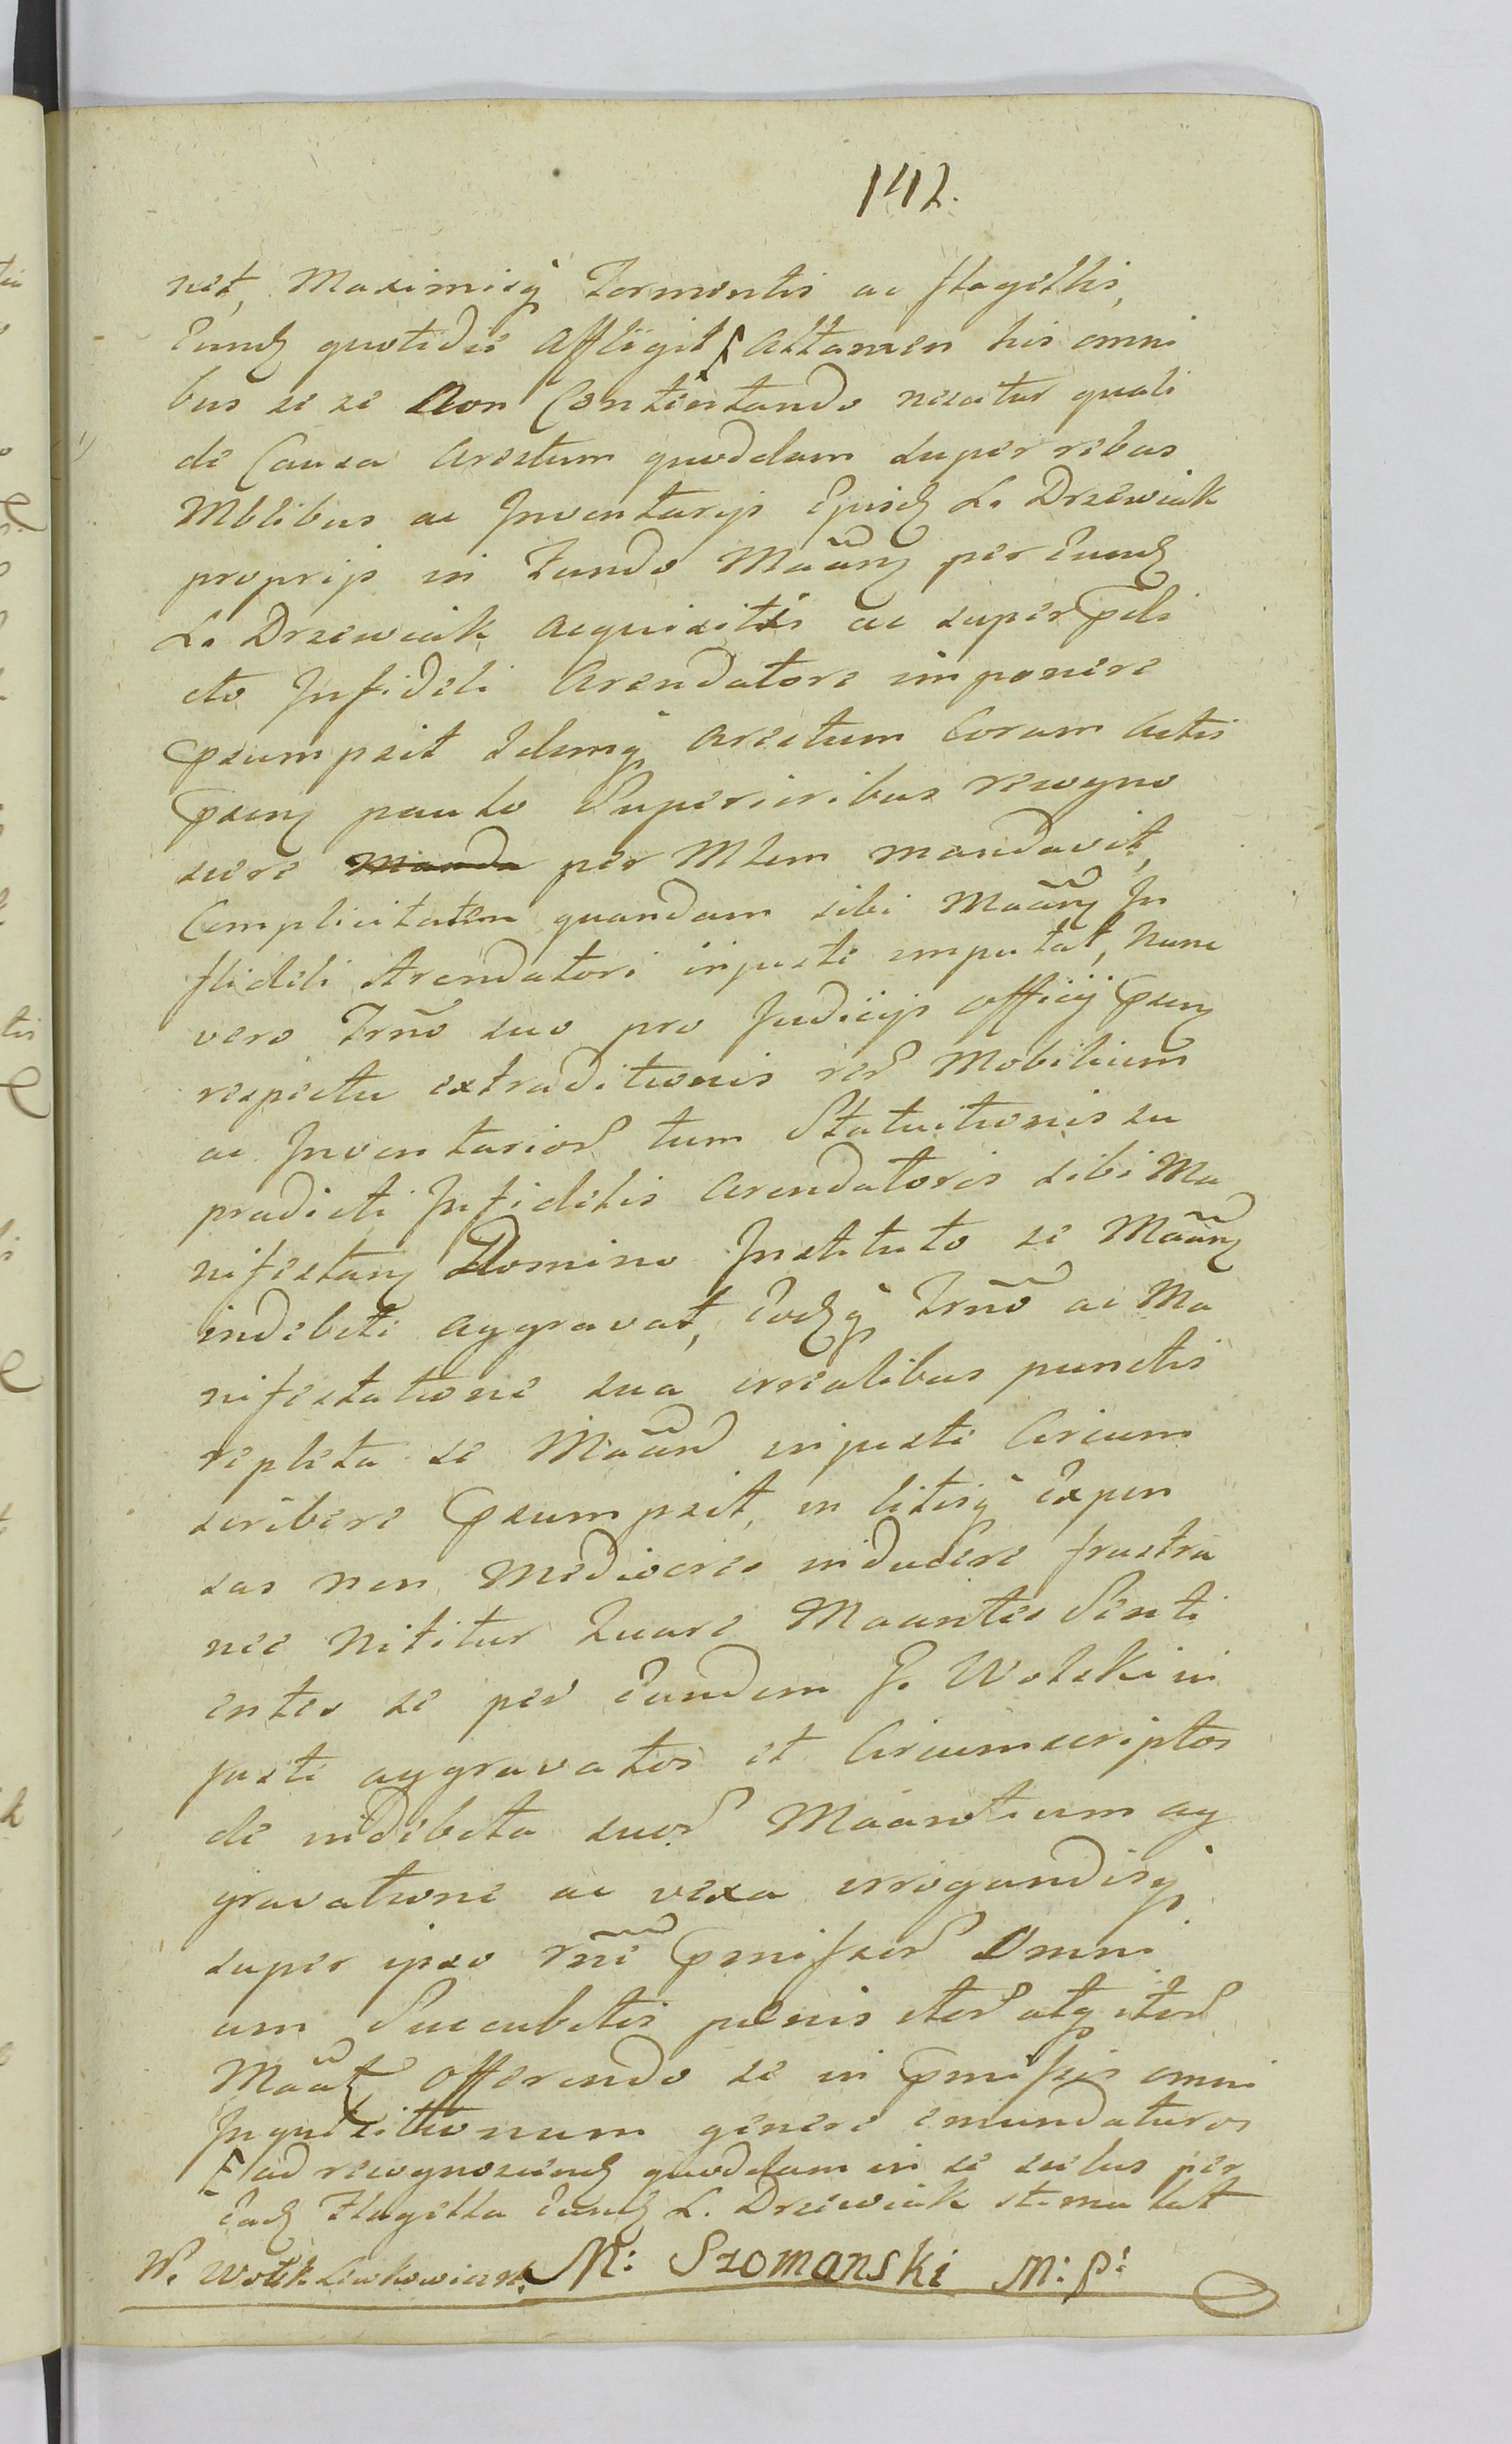 142.
net, Maximisq̃ Tormentis ac flagellis,
Eundȝ quotidie affligit ʃ attamen his omni
bus se se non Contentando nescitur quali
de Causa Arestum quoddam super rebus
Mblibus ac Inventarijs Ejusdȝ L. Drzewiak
proprijs in Fundo Mãanȝ per Eundȝ
L. Drzewiak acquisitis ac super pdi
cto Infideli Arendatore imponere
psumpsit Idemq̃ Arestum Coram Actis
psenȝ paulo Superioribus recogno
scere Manda per Mlem mandavit,
Complicitatem quandam sibi Mãanȝ In
fideli Arendatori injuste imputat, Nunc
vero Trño suo pro Judicijs Officij psenȝ
respectu extraditionis rer Mobilium
ac Inventarior tum Statuitionis su
pradicti Infidelis Arendatoris sibi Ma
nifestanȝ Domino Instituto se Mãanȝ
indebite aggravat, Eodȝq̃ Trño ac Ma
nifestatione sua irrealibus punctis
repleta se Mãan injuste Circum
scribere psumpsit, in litisq̃ Expen
sas non Mediocres inducere frustra
nee Nititur Quare Maantes Senti
entes se per Eundem G. Wolski in
juste aggravatos et Circumscriptos
de indebita suor Maantium ag
gravatione ac vexa irrogandisq̃
super ipso rñe pmissor Omni
um Succubitis paenis iter atq̃ iter
Mãatȝ Offerendo se in pmissis omni
Inquisitionum genere emundaturos
ʃ ad recognoscendȝ quoddam in se scelus per
Eadȝ Flagella Eundȝ L. Drzewiak stimulat
W. Wolsk Lewkowiczk. M: Szomanski M: P: